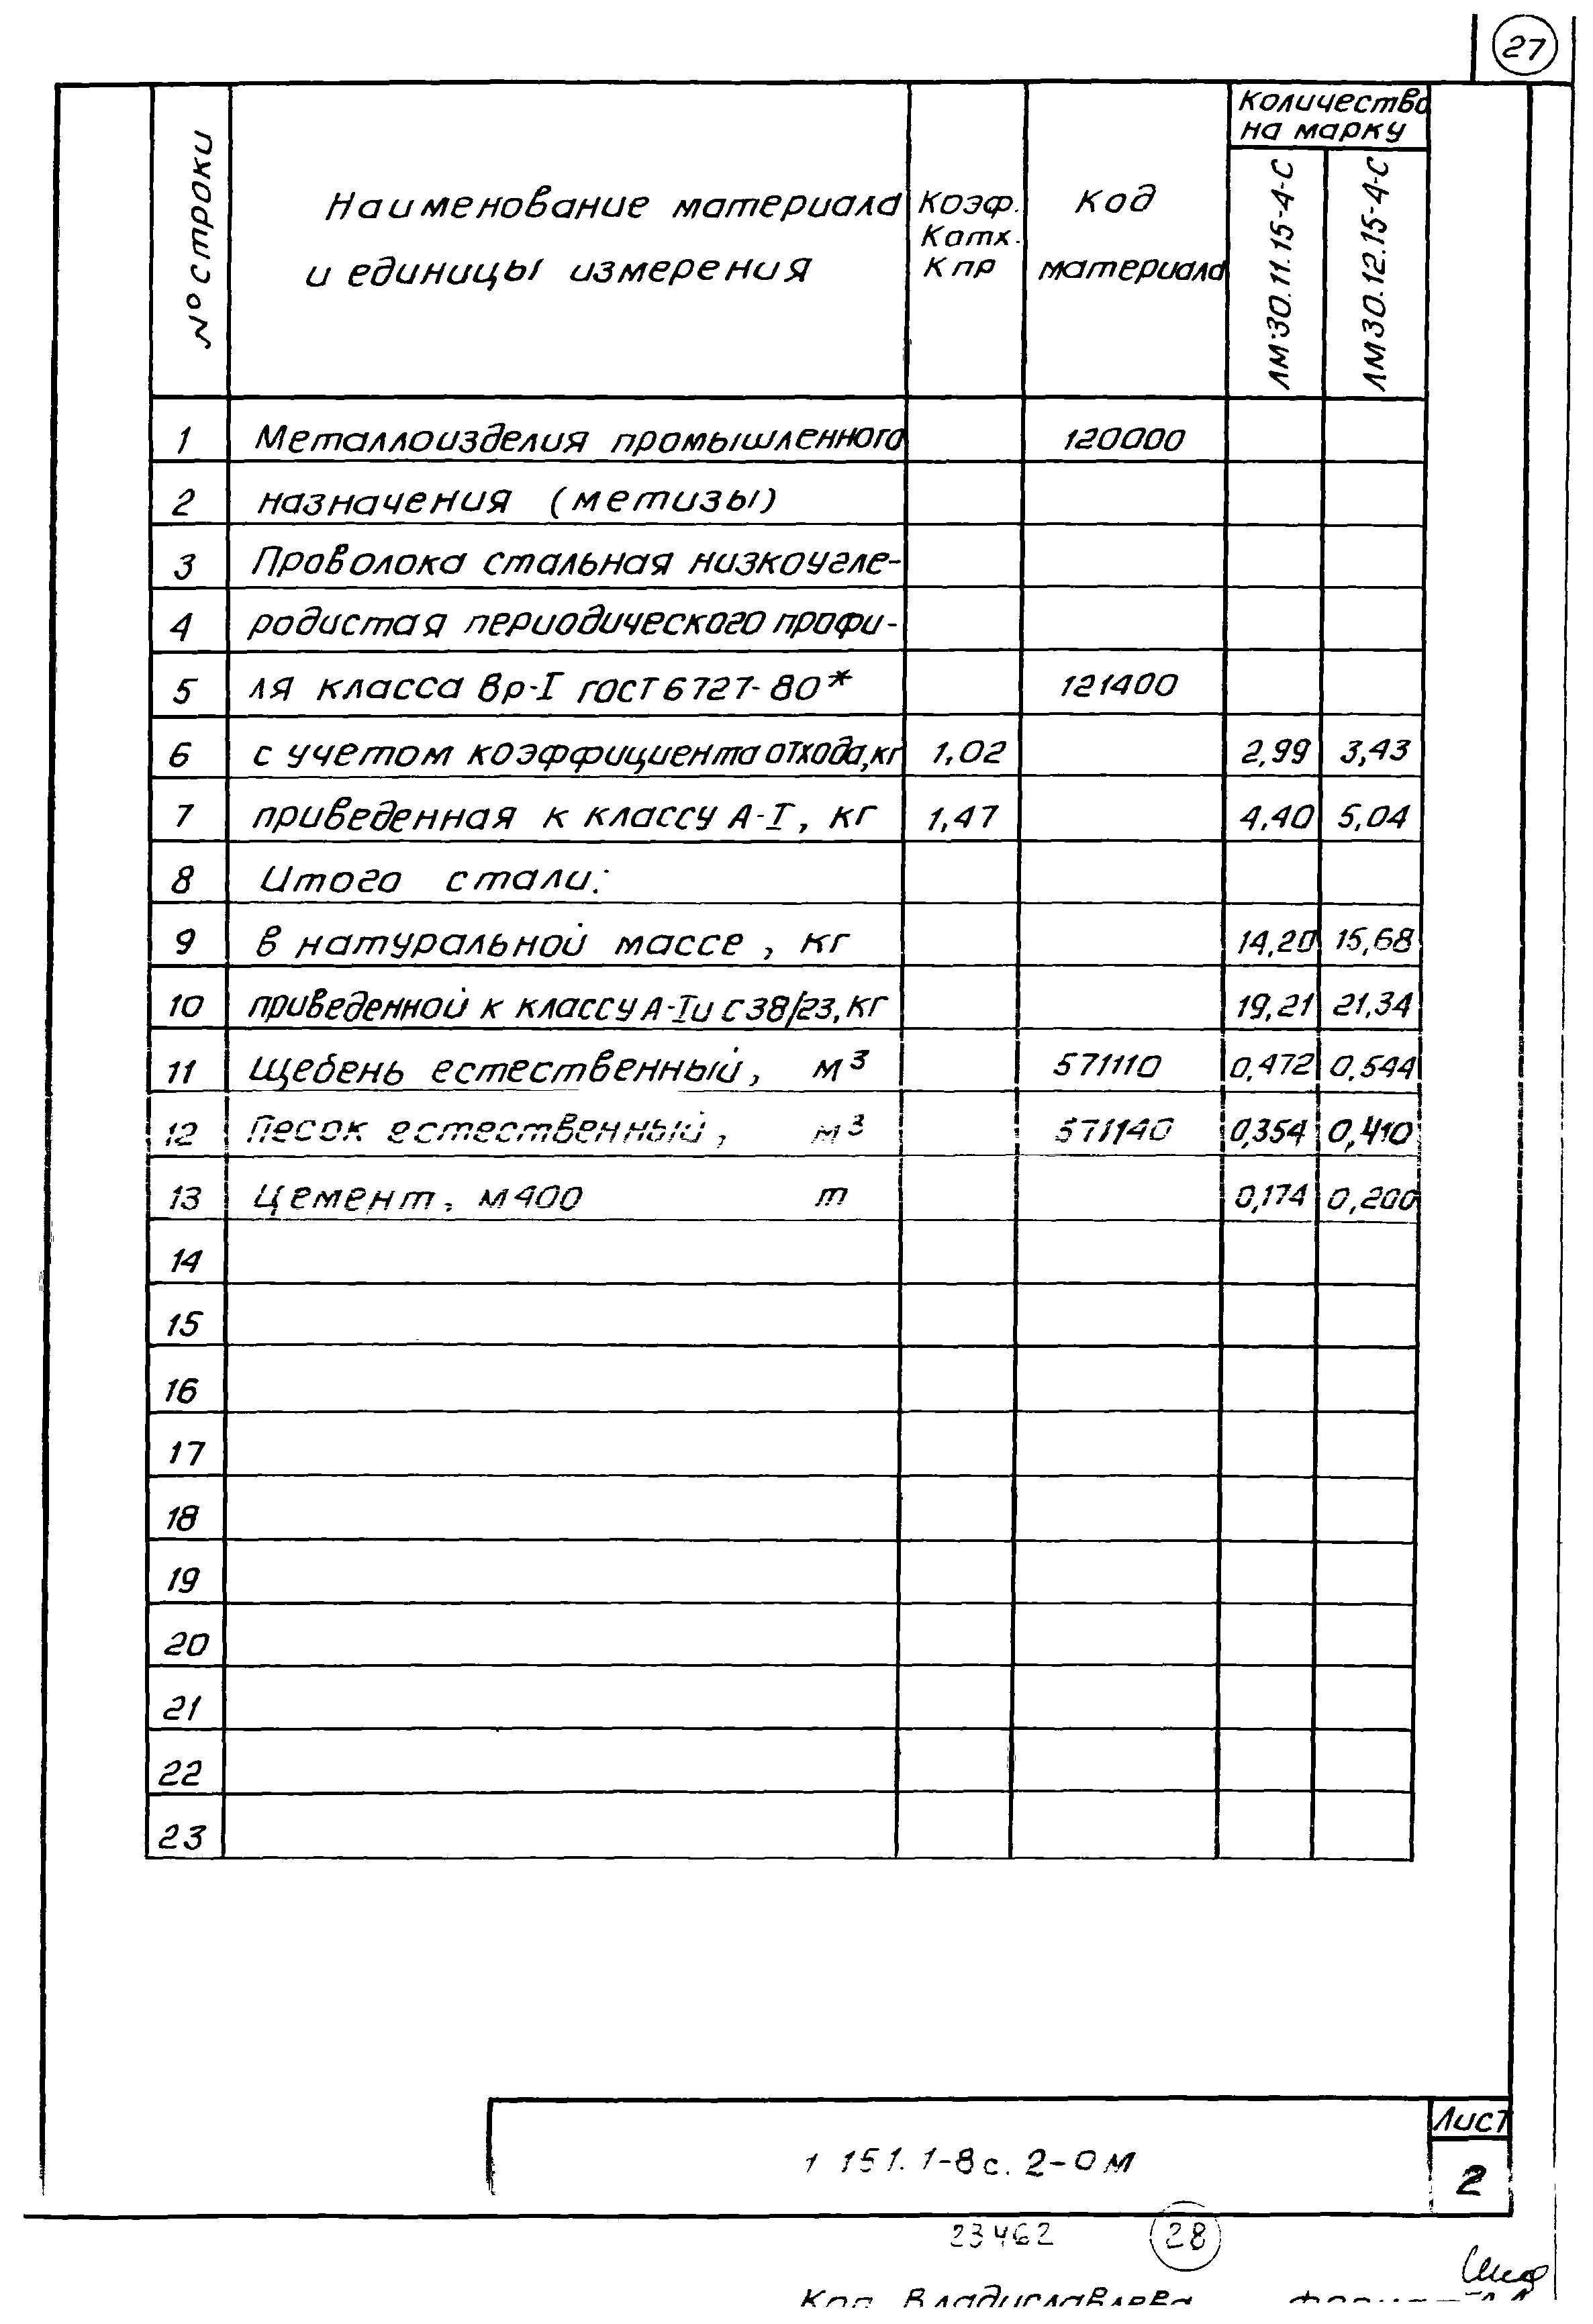 27
№ строки
Наименование материала
и единицы измерения
Коэф.
Котх.
К пр
Код
материала
Количество
на марку
ЛМ 30.11.15-4-С
ЛМ 30.12.15-4-С
1 Металлоизделия промышленного 120000
2 назначения (метизы)
3 Проволока стальная низкоугле-
4 родистая периодического профи-
5 ля класса Вр-I ГОСТ 6727-80* 121400
6 с учетом коэффициента отхода, кг 1,02 2,99 3,43
7 приведенная к классу А-I, кг 1,47 4,40 5,04
8 Итого стали:
9 в натуральной массе, кг 14,20 15,68
10 приведенной к классу А-I и С38/23, кг 19,21 21,34
11 Щебень естественный, м³ 571110 0,472 0,544
12 Песок естественный, м³ 571140 0,354 0,410
13 Цемент, М400 т 0,174 0,200
14
15
16
17
18
19
20
21
22
23
1 151.1-8с.2-0М
Лист
2
23462
28
Коп. Владиславлева